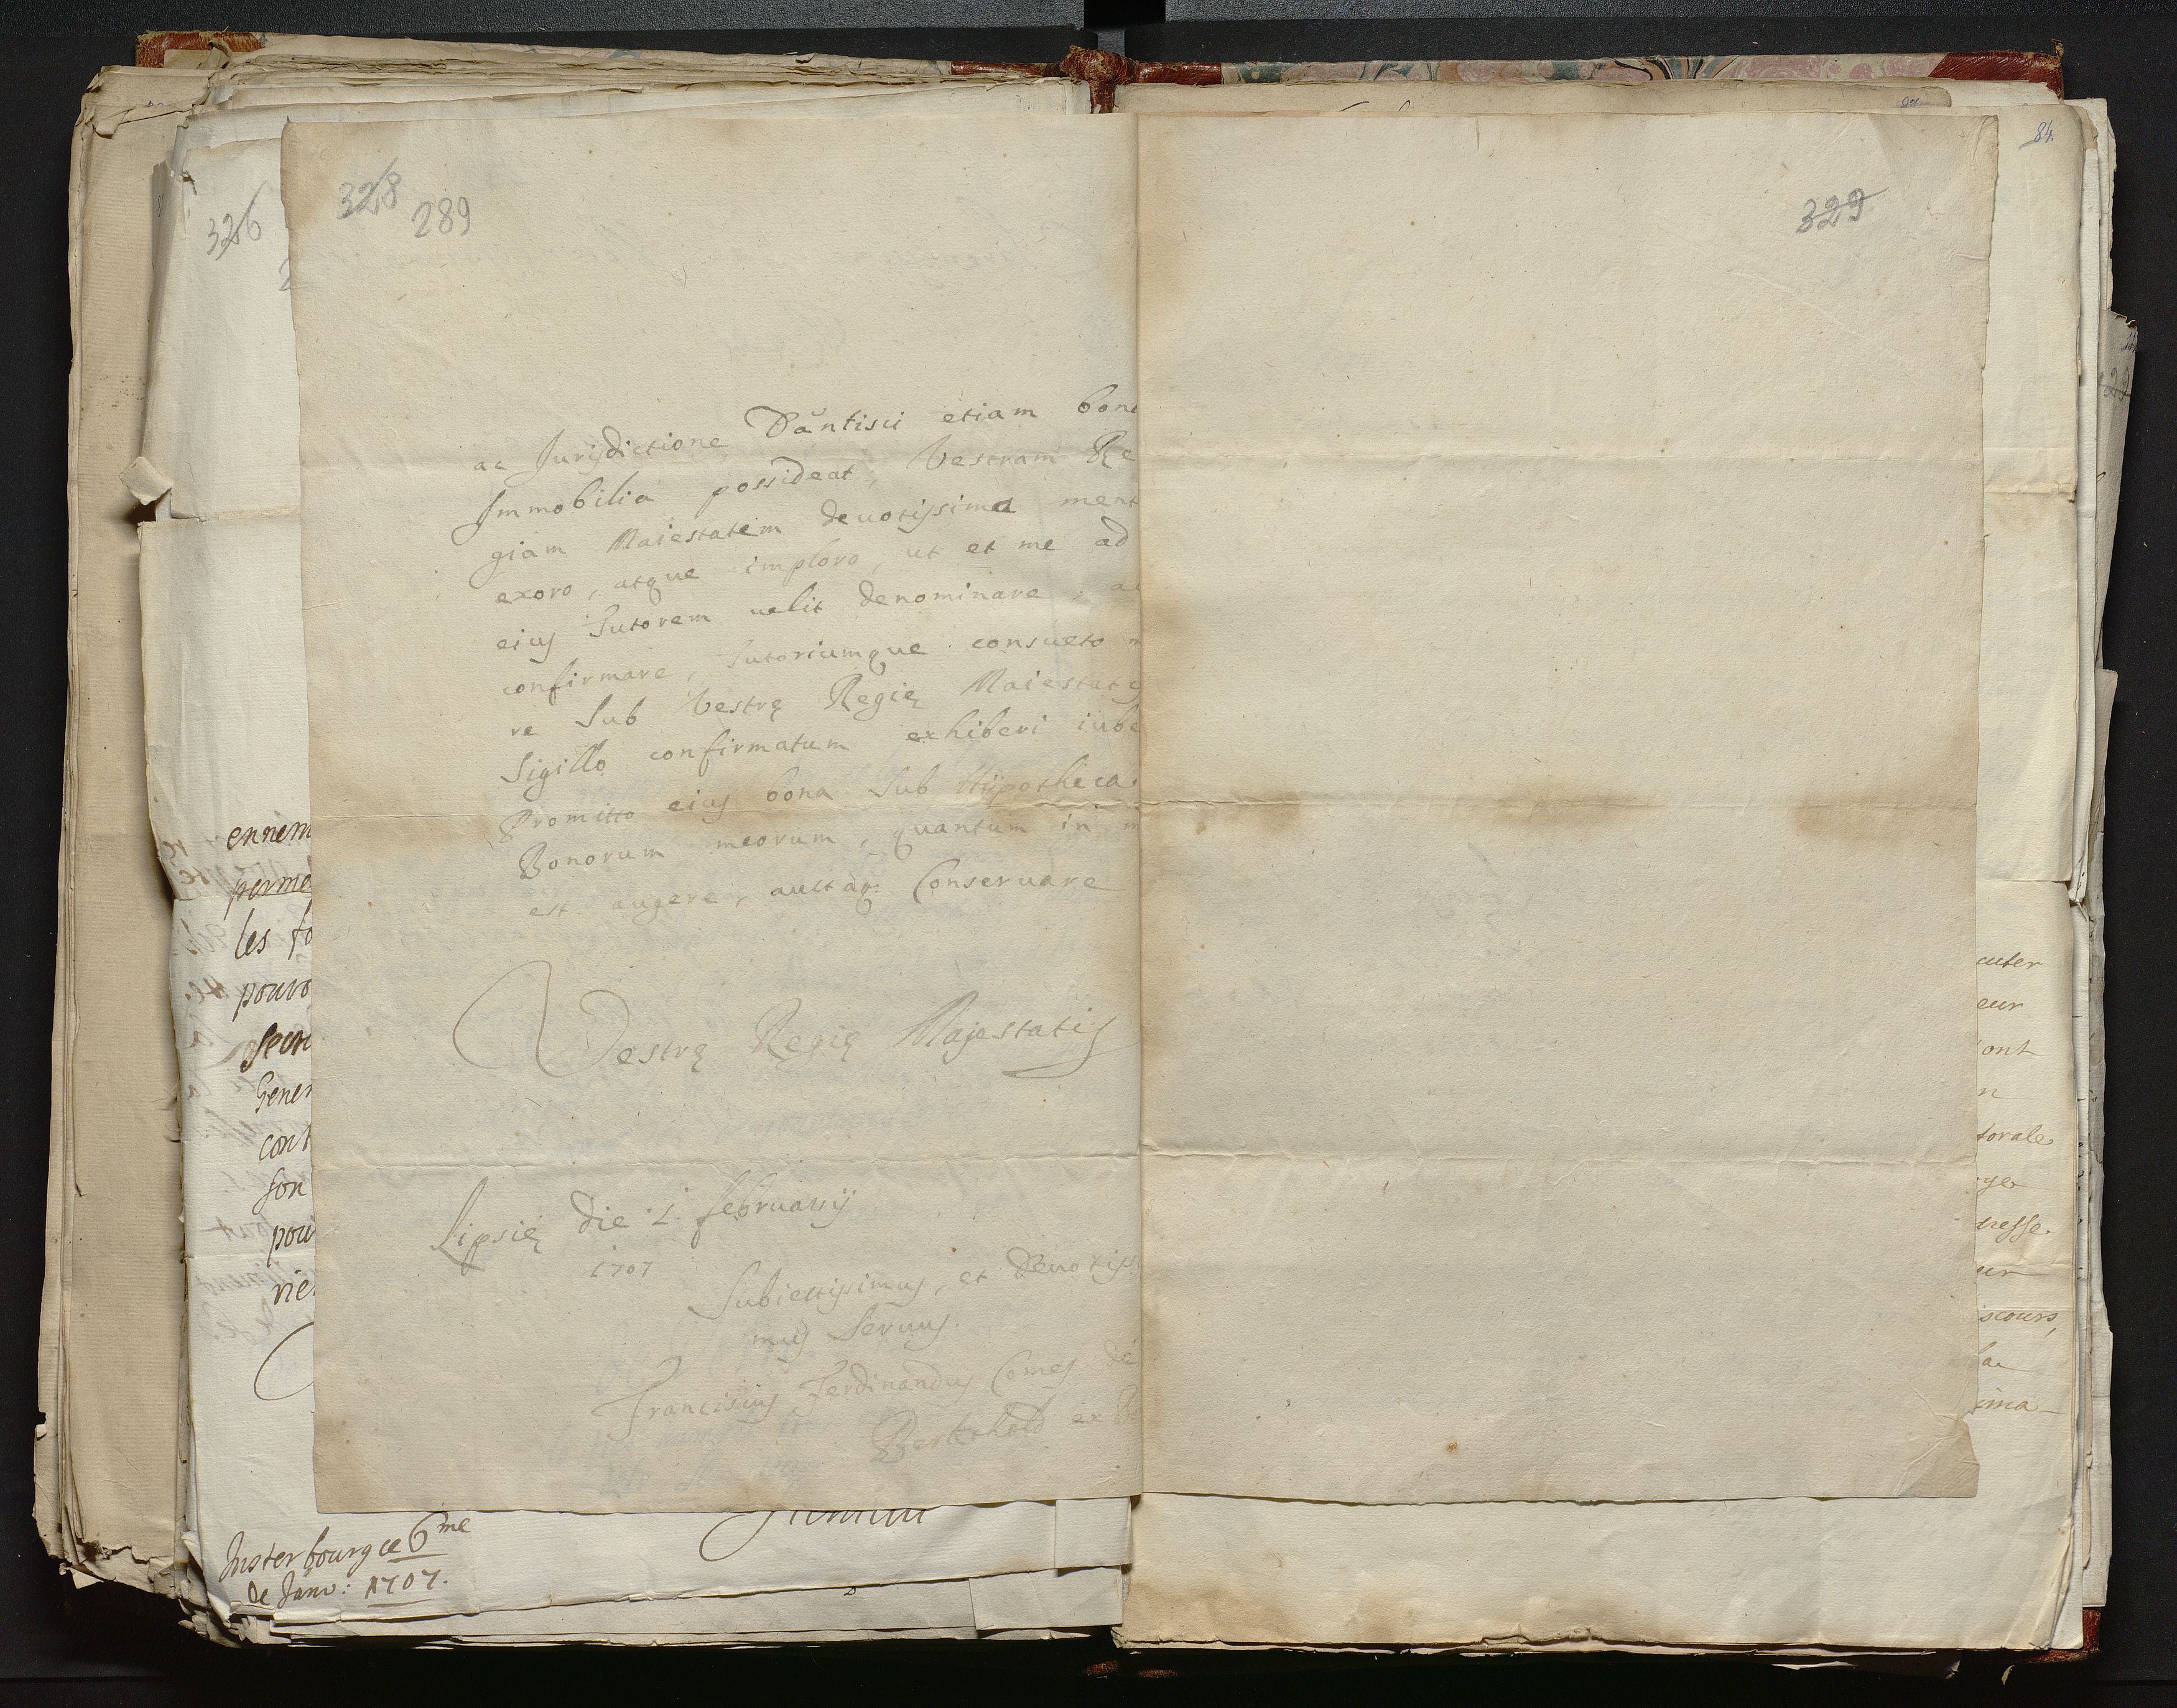 328
289
ac Jurisdictione Dantisci etiam bon
Immobilia possideat, Vestram Re
giam Maiestatem deuotissima ment
exoro, atque imploro, ut et me ad
eius Tutorem uelit denominare, a
confirmare, Tutoriumque consueto m
re Sub Vestrę Regię Maiestatis
Sigillo confirmatum exhiberi iube
Promitto eius bona Sub Hypotheca
Bonorum meorum, quantum in m
est augere, auctaq: Conseruare
Vestrę Regię Majestatis
Lipsię die 1. februarij
1707
Subiectissimus, et Deuotiss
mus Seruus.
Franciscus Ferdinandus Comes de
Bertthold ex
329
84.
326
ennem
perme
les fo
pouvo
Gener
cont
son
pou
rie
Insterbourg ce 6me
de Janv: 1707.
cuter
eur
ont
n
torale
ye
resse.
ur
scours,
la
ima-